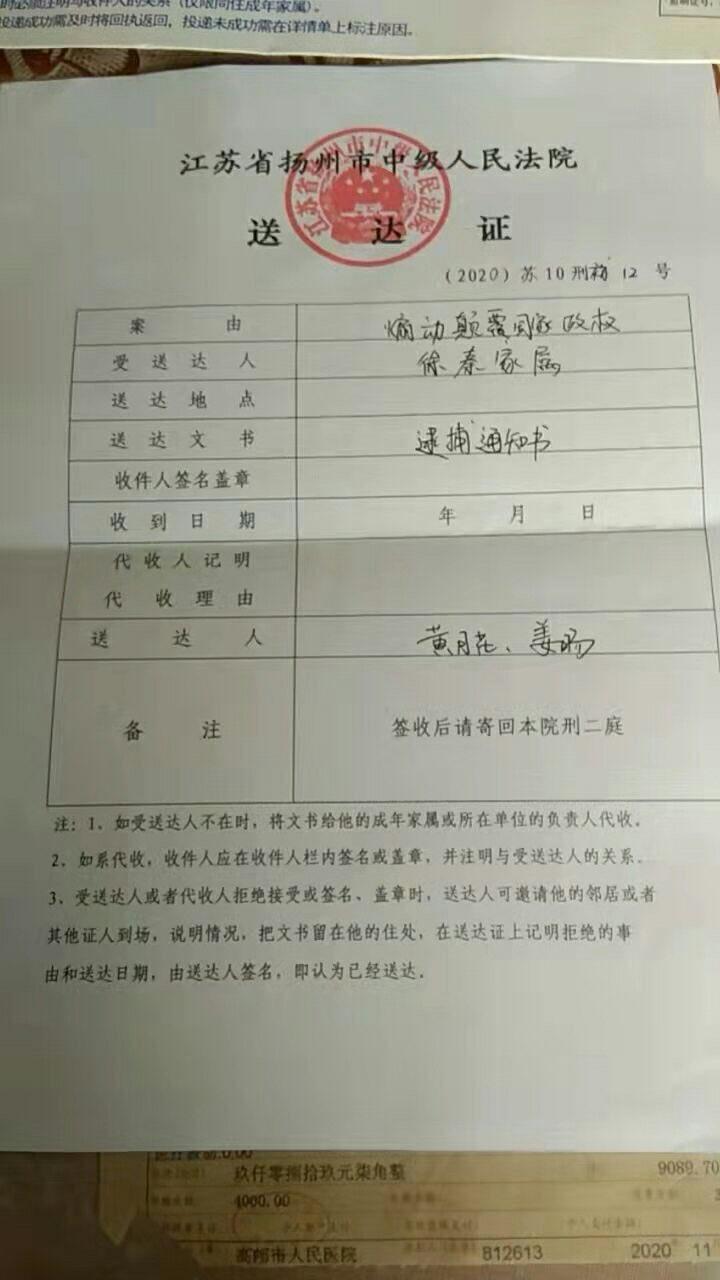 投递成功需及时将回执返回，投递未成功需在详情单上标注原因。
江苏省扬州市中级人民法院
送达证
(2020)苏10刑初12号
案由 煽动颠覆国家政权
受送达人 徐秦家属
送达地点
送达文书 逮捕通知书
收件人签名盖章
收到日期 年 月 日
代收人记明
代收理由
送达人 黄月花、姜旸
备注 签收后请寄回本院刑二庭
注：1、如受送达人不在时，将文书给他的成年家属或所在单位的负责人代收。
2、如系代收，收件人应在收件人栏内签名或盖章，并注明与受送达人的关系。
3、受送达人或者代收人拒绝接受或签名、盖章时，送达人可邀请他的邻居或者
其他证人到场，说明情况，把文书留在他的住处，在送达证上记明拒绝的事
由和送达日期，由送达人签名，即认为已经送达。
玖仟零捌拾玖元柒角整 9089.70
4000.00
高邮市人民医院 812613 2020 11